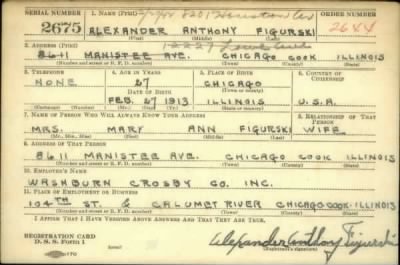 SERIAL NUMBER 1. NAME (Print) ORDER NUMBER
2675 ALEXANDER ANTHONY FIGURSKI 2644
(First) (Middle) (Last)
2. ADDRESS (Print) 12227
8611 MANISTEE AVE. CHICAGO COOK ILLINOIS
(Number and street or R. F. D. number) (Town) (County) (State)
3. TELEPHONE 4. AGE IN YEARS 5. PLACE OF BIRTH 6. COUNTRY OF CITIZENSHIP
NONE 27 CHICAGO
DATE OF BIRTH (Town or county)
FEB. 27 1913 ILLINOIS U.S.A.
(Exchange) (No.) (Mo.) (Day) (Yr.) (State or country)
7. NAME OF PERSON WHO WILL ALWAYS KNOW YOUR ADDRESS 8. RELATIONSHIP OF THAT PERSON
MRS. MARY ANN FIGURSKI WIFE
(Mr., Mrs., Miss) (First) (Middle) (Last)
9. ADDRESS OF THAT PERSON
8611 MANISTEE AVE. CHICAGO COOK ILLINOIS
(Number and street or R. F. D. number) (Town) (County) (State)
10. EMPLOYER'S NAME
WASHBURN CROSBY CO. INC.
11. PLACE OF EMPLOYMENT OR BUSINESS
104TH ST. & CALUMET RIVER CHICAGO-COOK-ILLINOIS
(Number and street or R. F. D. number) (Town) (County) (State)
I AFFIRM THAT I HAVE VERIFIED ABOVE ANSWERS AND THAT THEY ARE TRUE.
REGISTRATION CARD
D. S. S. Form 1
Alexander Anthony Figurski
(Registrant's signature)